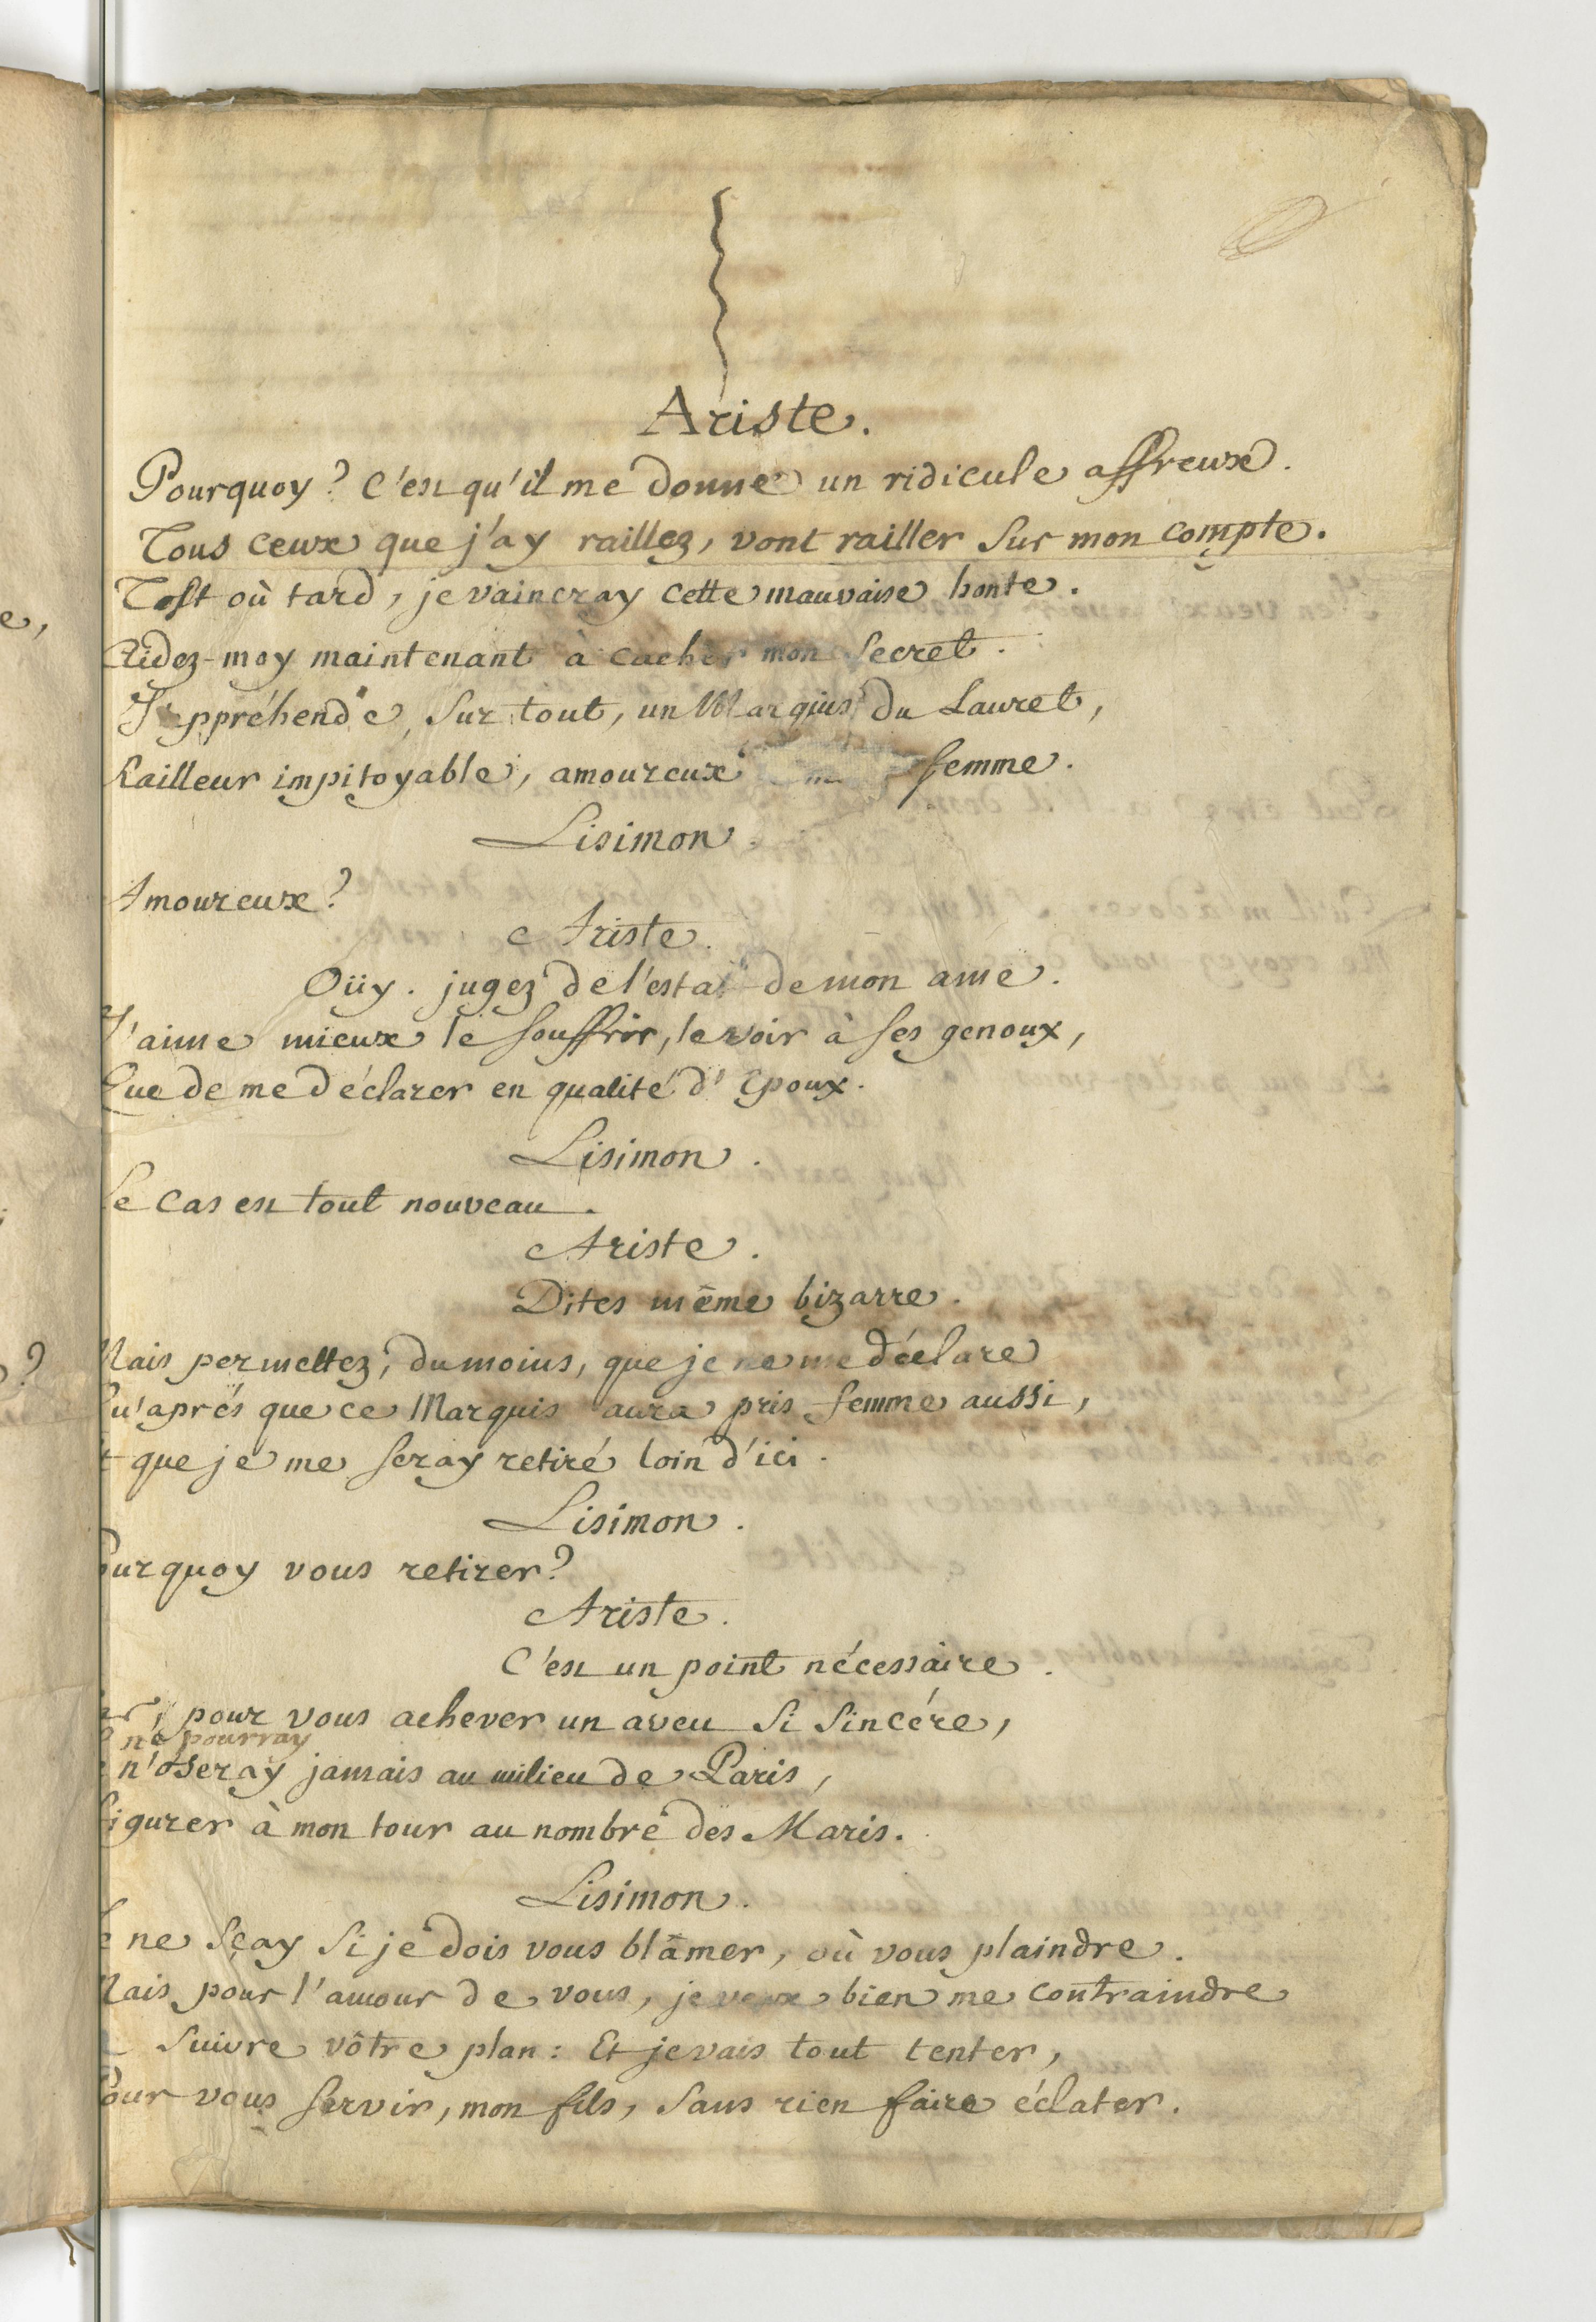 Ariste.
Pourquoy? C'est qu'il me donne un ridicule affreux.
Tous ceux que j'ay raillez, vont railler sur mon compte.
Tost où tard, je vaincray cette mauvaise honte.
Aidez-moy maintenant à cacher mon secret.
J'appréhende, sur tout, un Marquis du Lauret,
Railleur impitoyable, amoureux femme.
Lisimon.
Amoureux?
Ariste.
Oüy. jugez de l'estat de mon ame.
J'aime mieux le souffrir, le voir à ses genoux,
Que de me déclarer en qualité d'Epoux.
Lisimon.
Le cas est tout nouveau.
Ariste.
Dites même bizarre.
Mais permettez, dumoins, que je ne me déclare
Qu'aprés que ce Marquis aura pris femme aussi,
Et que je me seray retiré loin d'ici.
Lisimon.
Pourquoy vous retirer?
Ariste.
C'est un point nécessaire.
pour vous achever un aveu si sincére,
ne pourray
n'oseray jamais au milieu de Paris,
Figurer à mon tour au nombre des Maris.
Lisimon.
Je ne sçay si je dois vous blâmer, où vous plaindre.
Mais pour l'amour de vous, je veux bien me contraindre
suivre vôtre plan: Et je vais tout tenter,
Pour vous servir, mon fils, sans rien faire éclater.